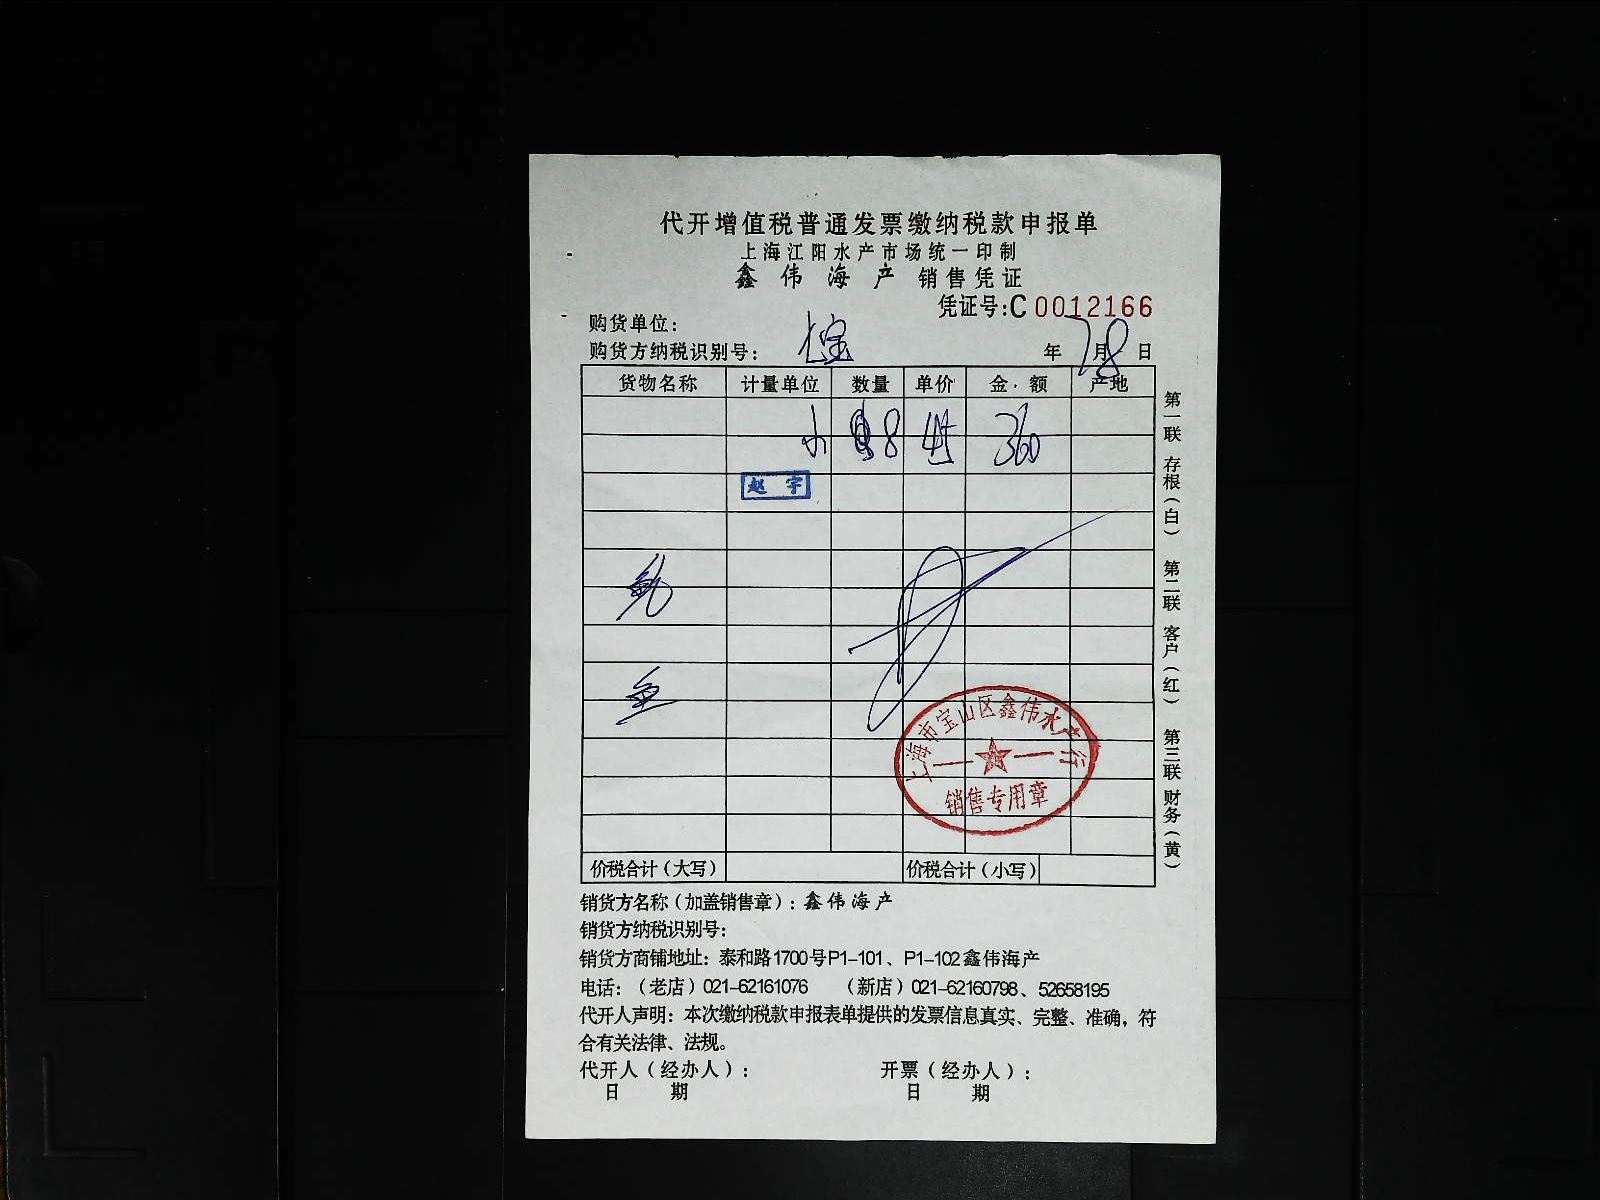 代开增值税普通发票缴纳税款申报单
上海江阳水产市场统一印制
鑫伟海产 销售凭证
凭证号:C 0012166
购货单位:
七宝
购货方纳税识别号: 年 7月8日
货物名称 计量单位 数量 单价 金额 产地
小 8 45 360
赵宇
鱼
上海市宝山区鑫伟水产行
销售专用章
价税合计(大写) 价税合计(小写)
第一联 存根(白) 第二联 客户(红) 第三联 财务(黄)
销货方名称(加盖销售章):鑫伟海产
销货方纳税识别号:
销货方商铺地址:泰和路1700号P1-101、P1-102鑫伟海产
电话:(老店)021-62161076 (新店)021-62160798、52658195
代开人声明:本次缴纳税款申报表单提供的发票信息真实、完整、准确,符
合有关法律、法规。
代开人(经办人): 开票(经办人):
日 期 日 期